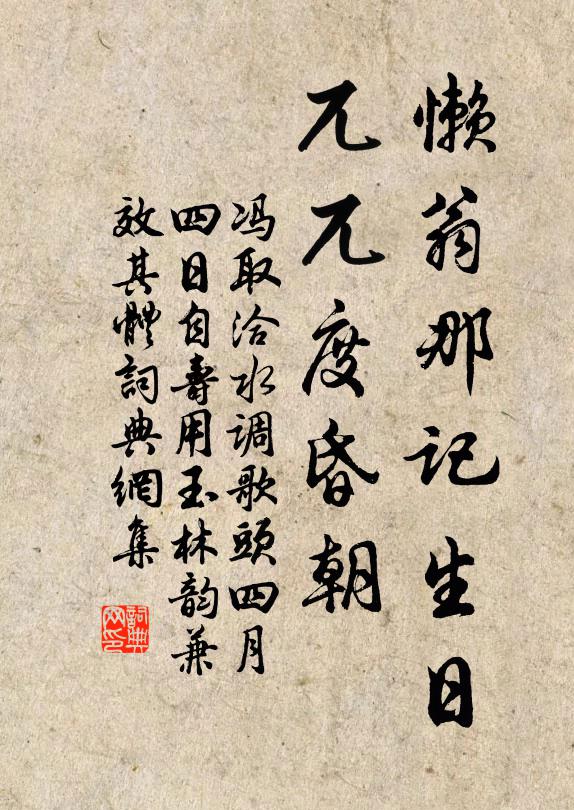 懒翁那记生日
兀兀度昏朝
冯取洽水调歌頭四月
四日自壽用玉林韵兼
效其體詞典網集
詞典网印